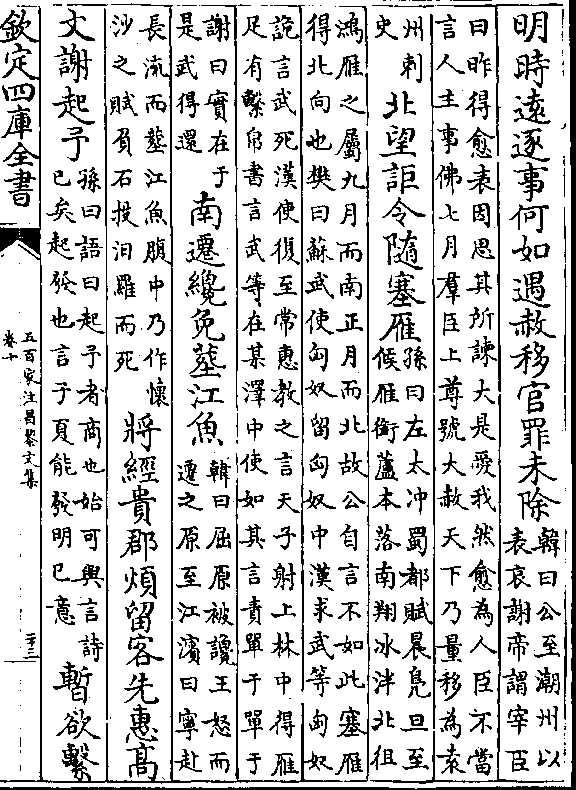 明時遠逐事何如遇赦移官罪未除
韓曰公至潮州以
表哀謝帝謂宰臣
曰昨得愈表因思其所諫大是愛我然愈為人臣不當
言人主事佛七月羣臣上尊號大赦天下乃量移為袁
州刺
史
北望詎令隨塞雁
孫曰左太冲蜀都賦晨鳧旦至
候雁銜蘆本落南翔冰泮北徂
鴻雁之屬九月而南正月而北故公自言不如此塞雁
得北向也樊曰蘇武使匈奴留匈奴中漢求武等匈奴
詭言武死漢使復至常惠教之言天子射上林中得雁
足有繫帛書言武等在某澤中使如其言責單于單于
謝曰實在于
是武得還
南遷纔免葬江魚
韓曰屈原被讒王怒而
遷之原至江濱曰寧赴
長流而葬江魚腹中乃作懷
沙之賦負石投汨羅而死
將經貴郡煩留客先惠高
文謝起予
孫曰語曰起予者商也始可與言詩
已矣起發也言子夏能發明已意
暫欲繫
欽定四庫全書
五百家注昌黎文集
卷十